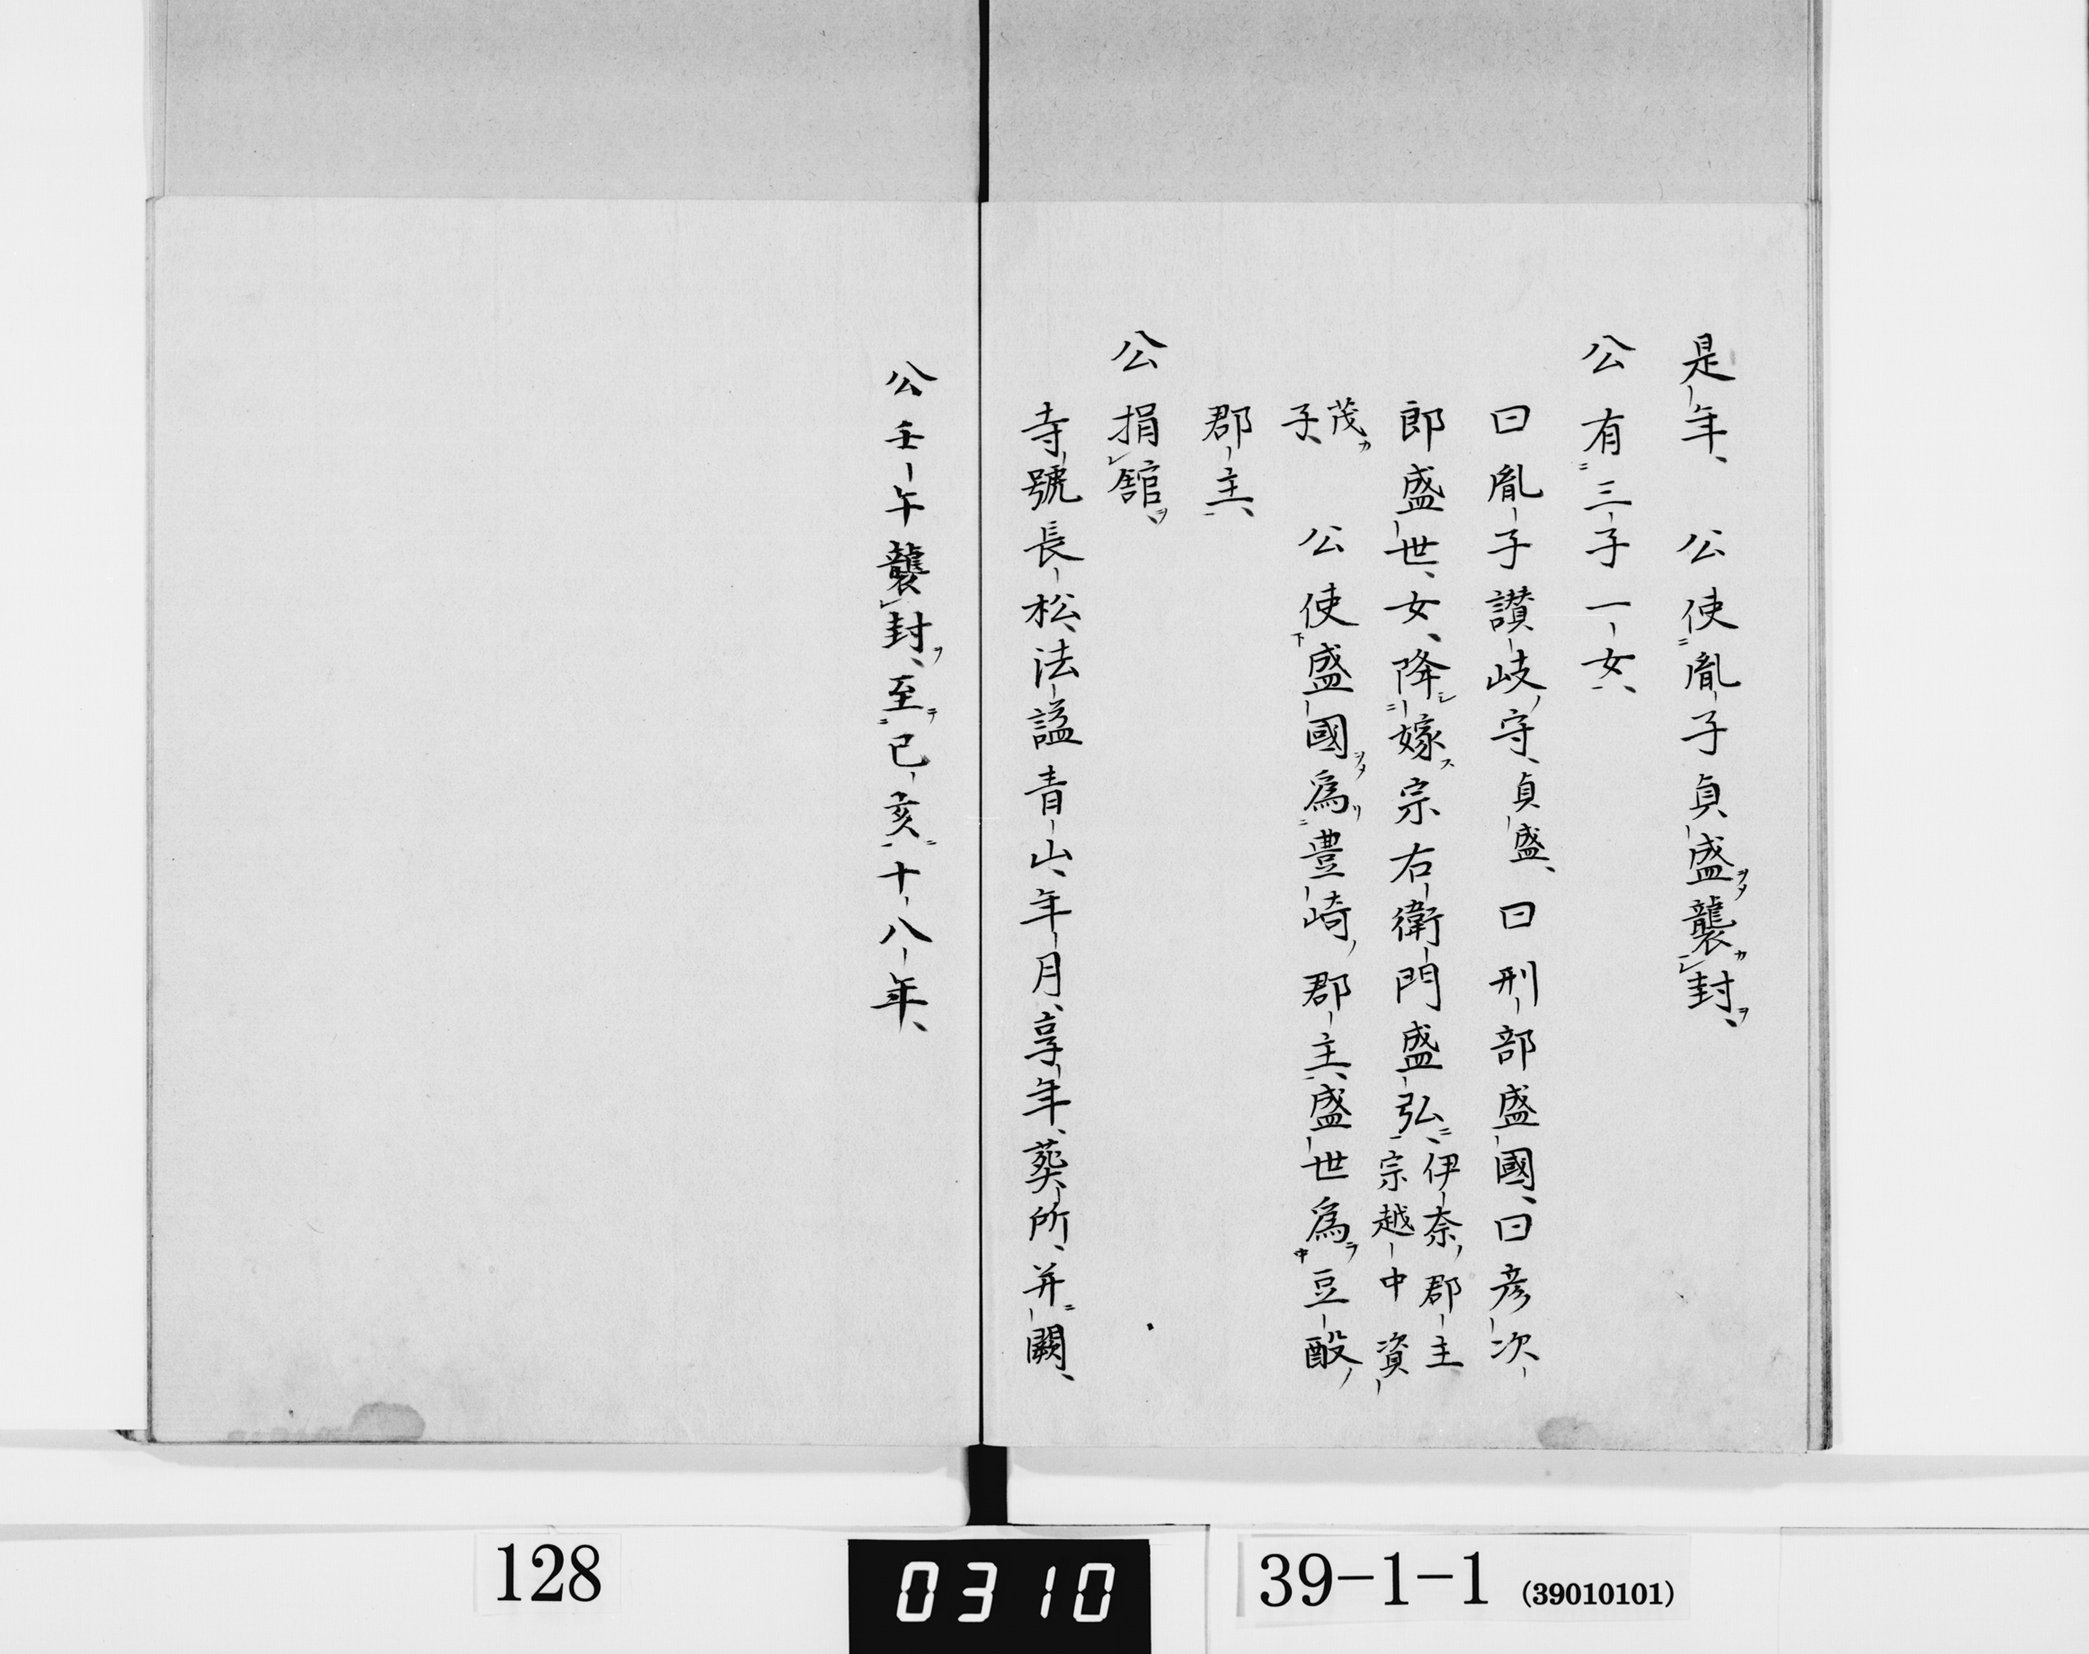 是年、公使胤子貞盛襲封、
公有三子一女、
曰胤子讃岐守、貞盛、曰刑部盛國、曰彦次
郎盛世、女、降嫁宗右衛門盛弘、伊奈郡主
宗越中資
茂
子、公使盛國爲豊崎郡主、盛世爲豆酘
郡主、
公捐舘、
寺號長松、法諡青山、年月、享年、葬所、并闕、
公壬午襲封、至己亥十八年、
128
0310
39-1-1 (39010101)